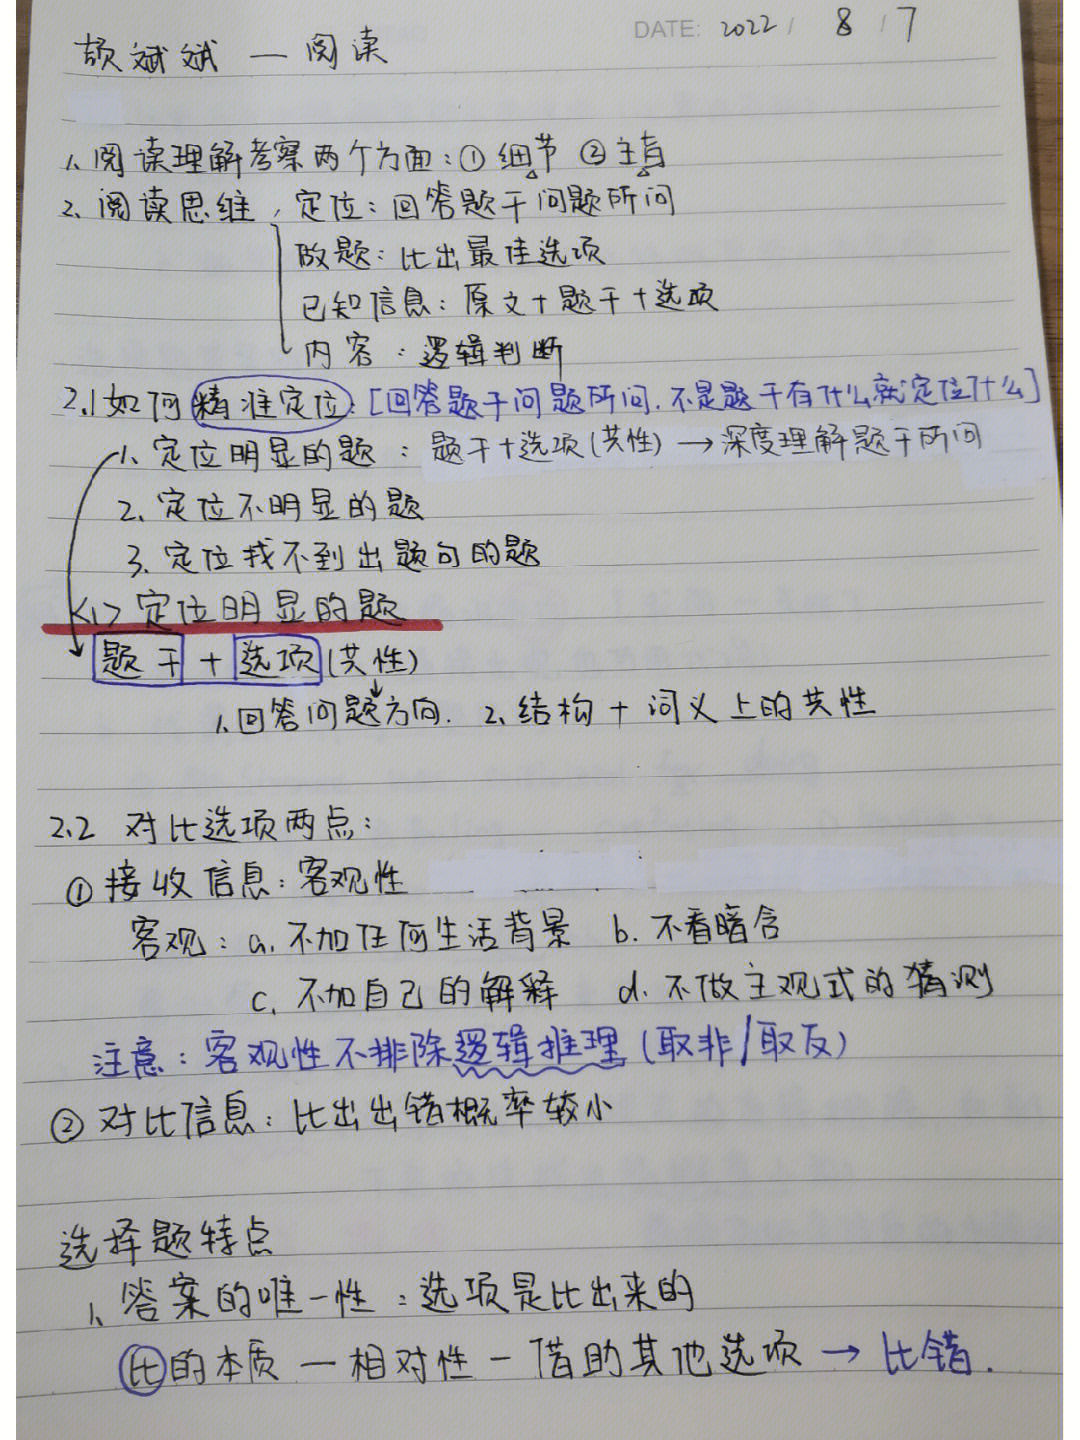 DATE: 2022 / 8 / 7
颉斌斌 — 阅读
1、阅读理解考察两个方面：① 细节 ② 主旨
2、阅读思维，定位：回答题干问题所问
做题：比出最佳选项
已知信息：原文＋题干＋选项
内容：逻辑判断
2.1 如何精准定位：[回答题干问题所问，不是题干有什么就定位什么]
1、定位明显的题：题干＋选项(共性) → 深度理解题干所问
2、定位不明显的题
3、定位找不到出题句的题
<1> 定位明显的题
题干 + 选项 (共性)
1、回答问题方向. 2、结构 + 词义上的共性
2.2 对比选项两点：
① 接收信息：客观性
客观：a. 不加任何生活背景 b. 不看暗含
c. 不加自己的解释 d. 不做主观式的猜测
注意：客观性不排除逻辑推理 (取非/取反)
② 对比信息：比出出错概率较小
选择题特点
1、答案的唯一性：选项是比出来的
比的本质 — 相对性 — 借助其他选项 → 比错.